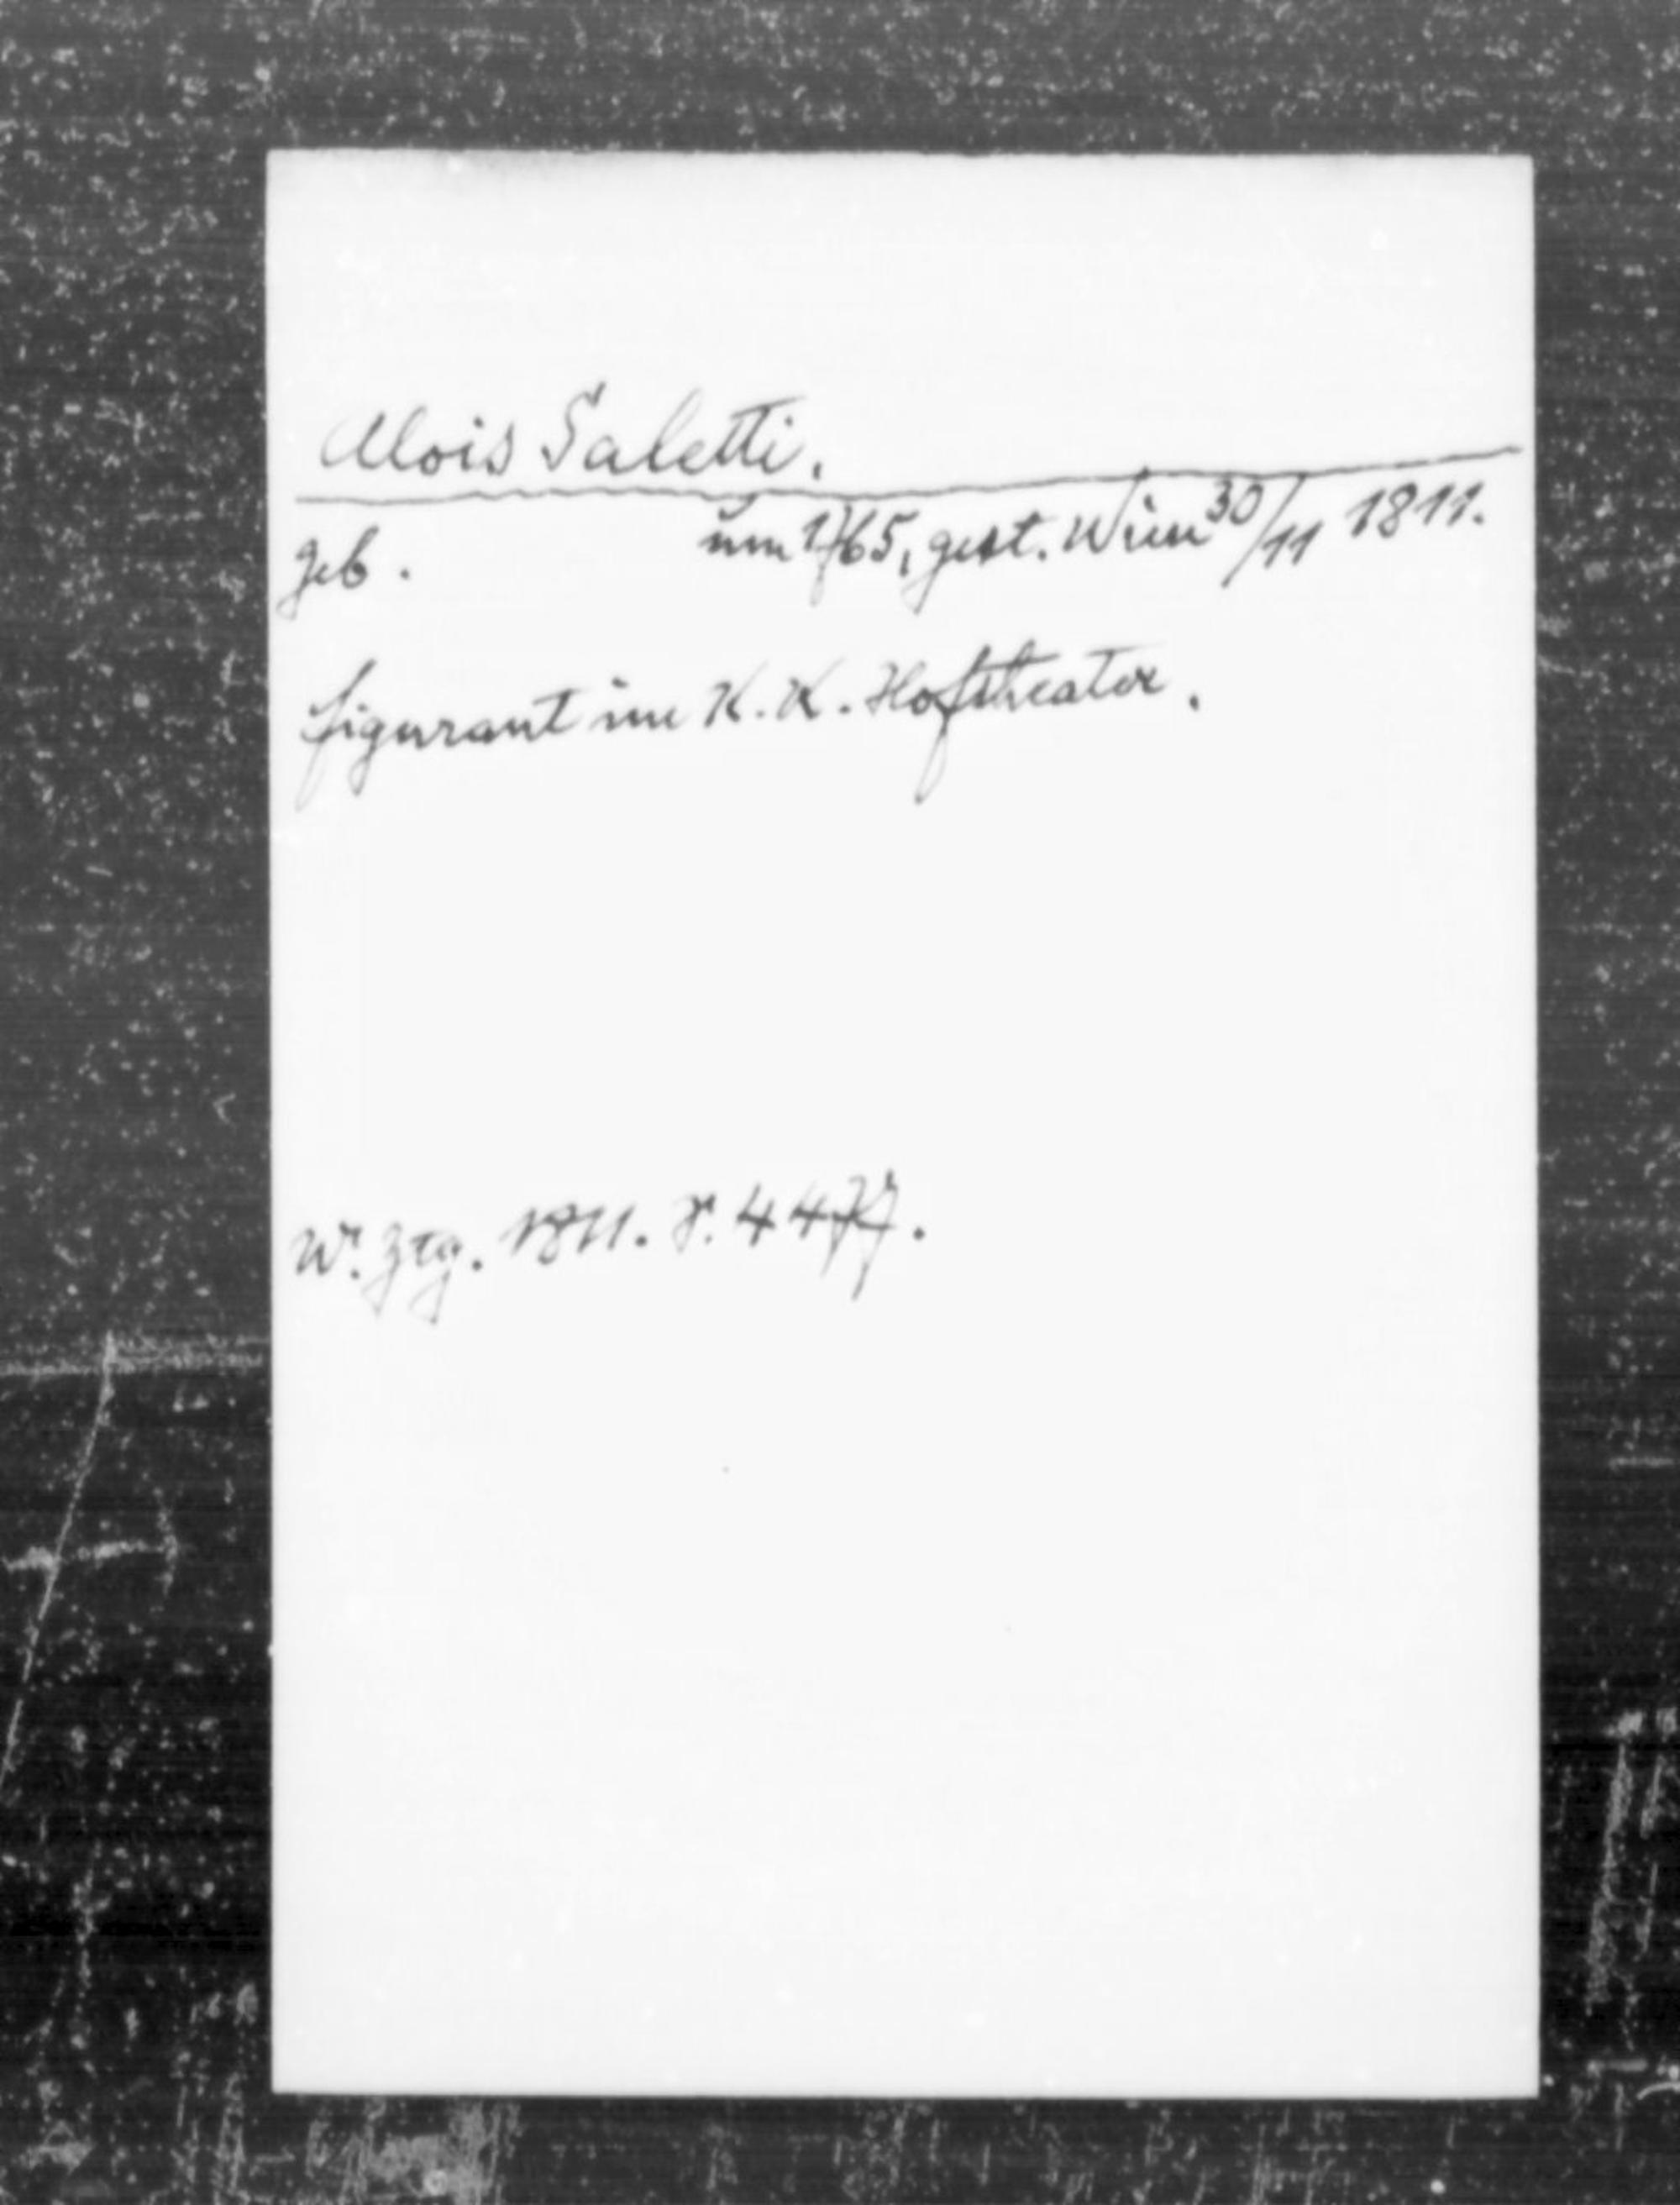 Alois Saletti.
geb. um 1765, gest. Wien 30/11 1811.
figurant im K. K. Hoftheater.
Wr. Ztg. 1811. S. 4477.